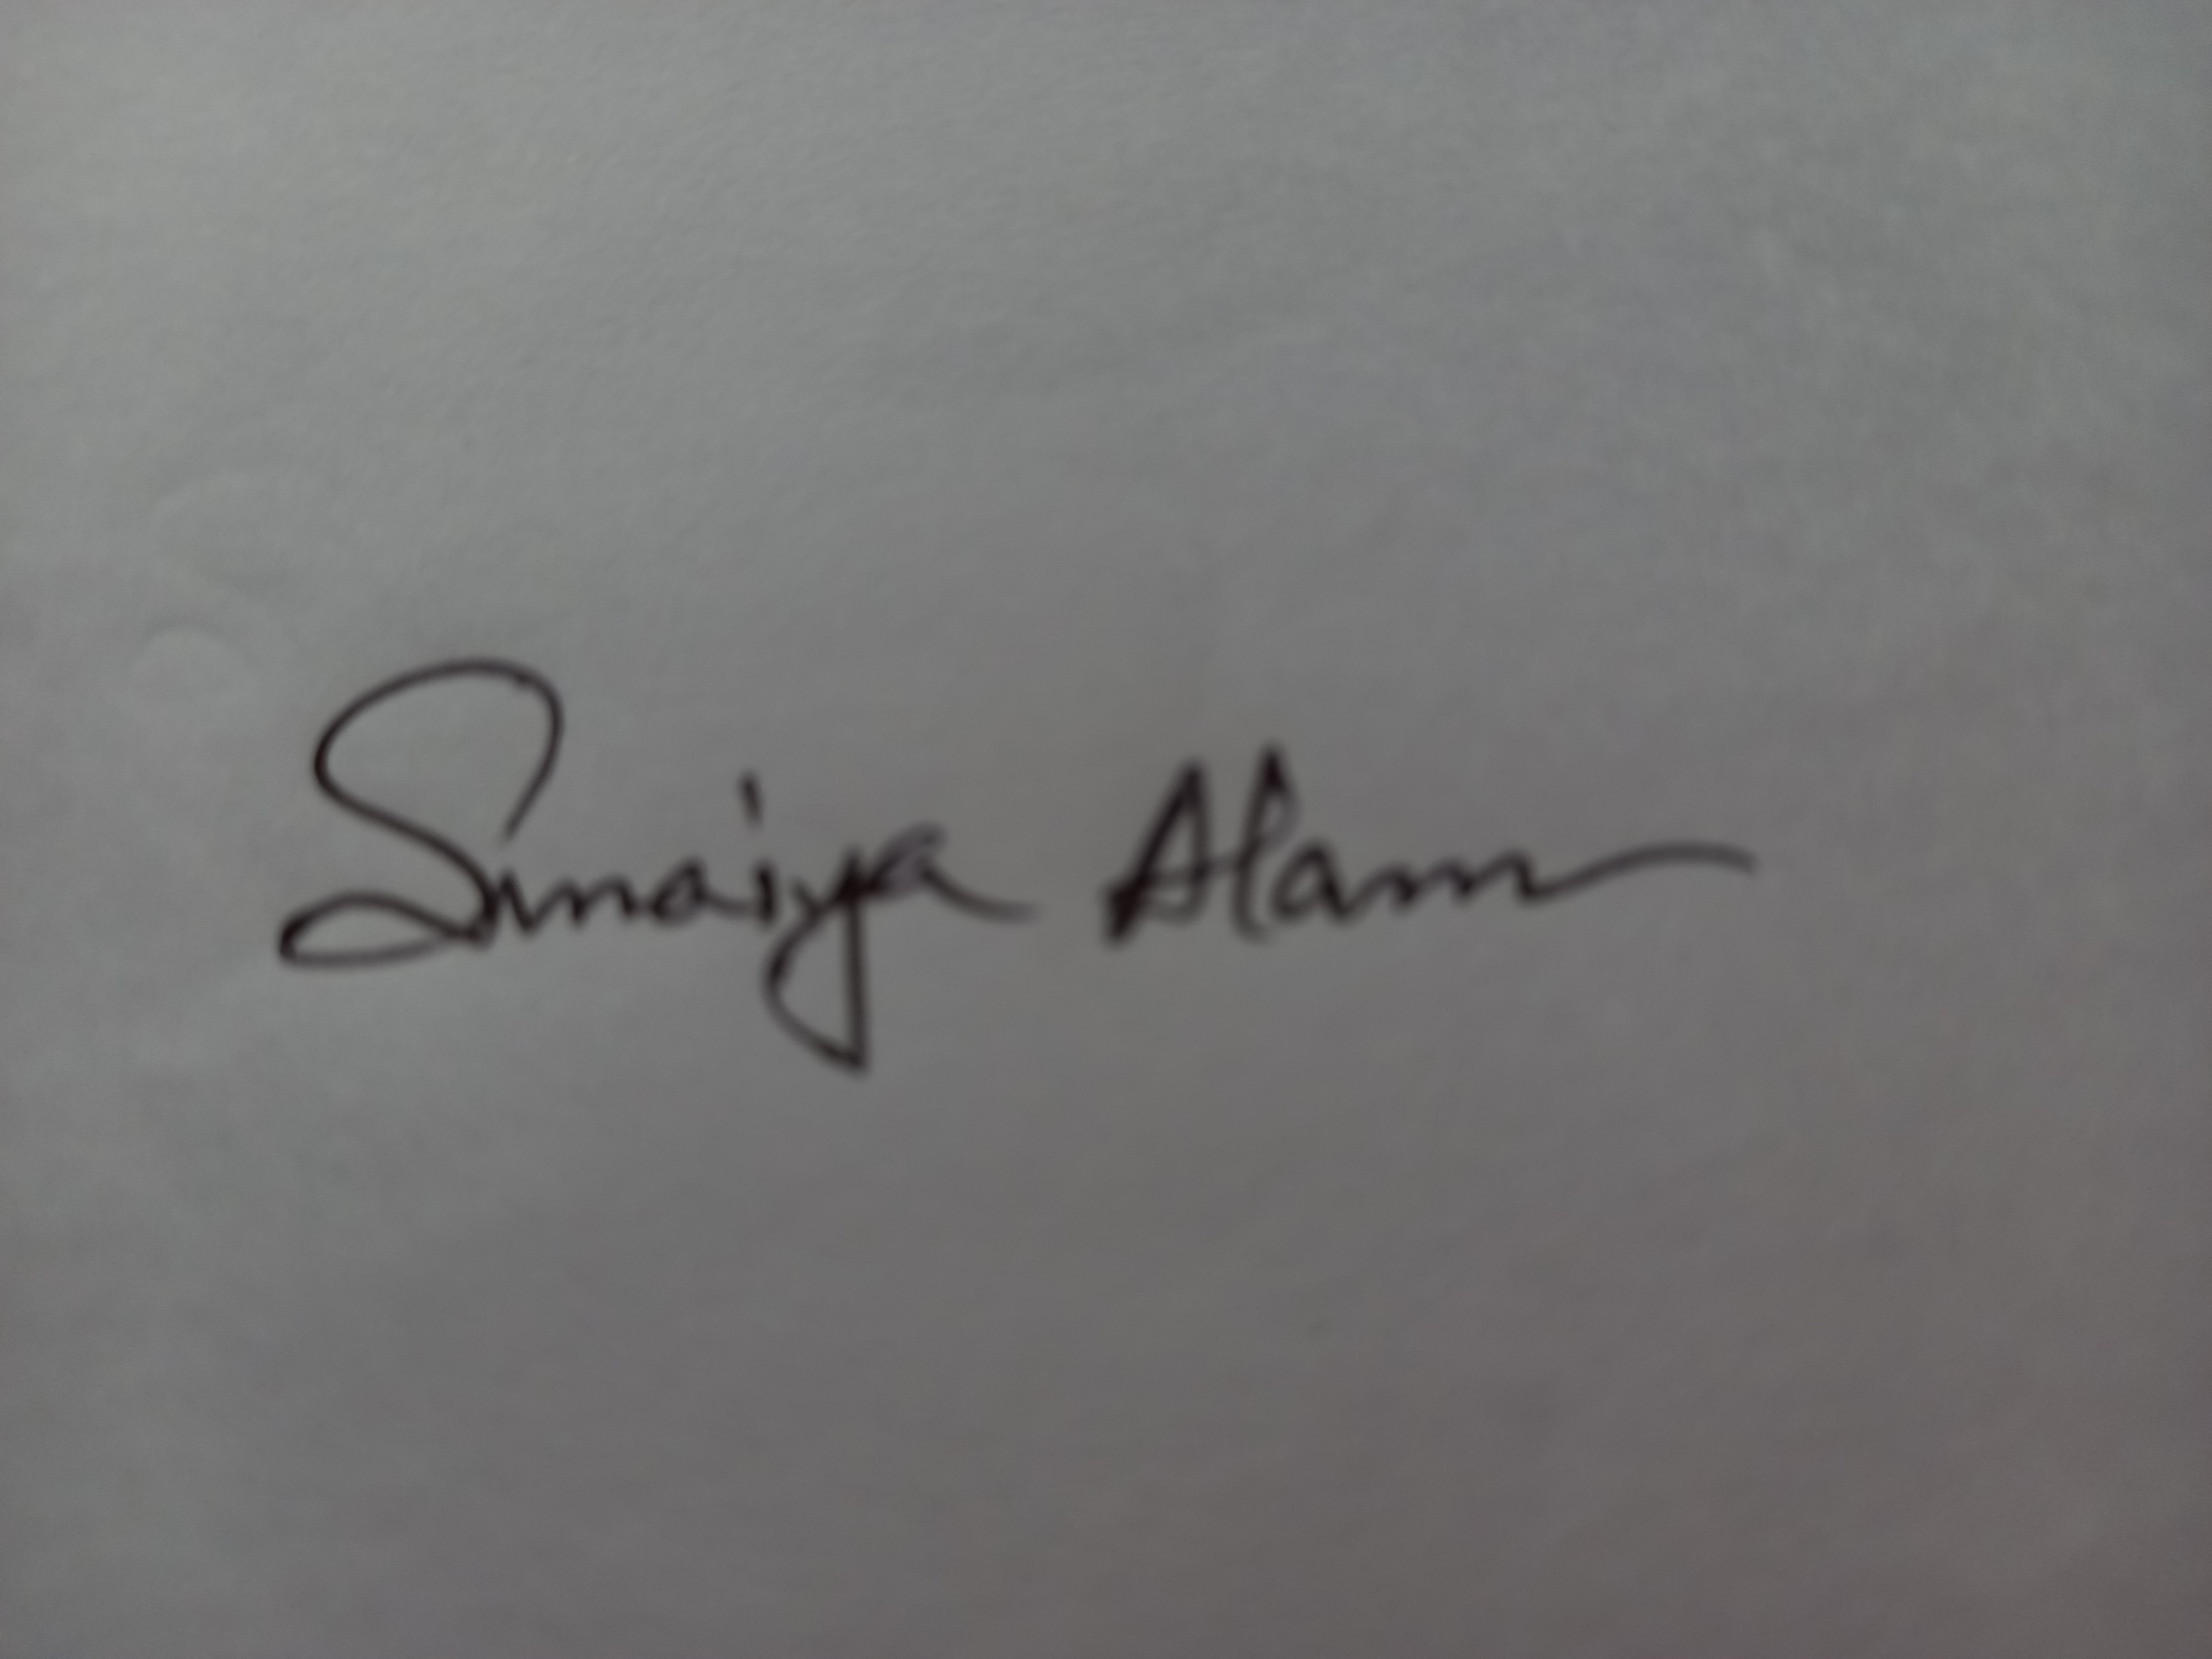 Sumaiya Alam